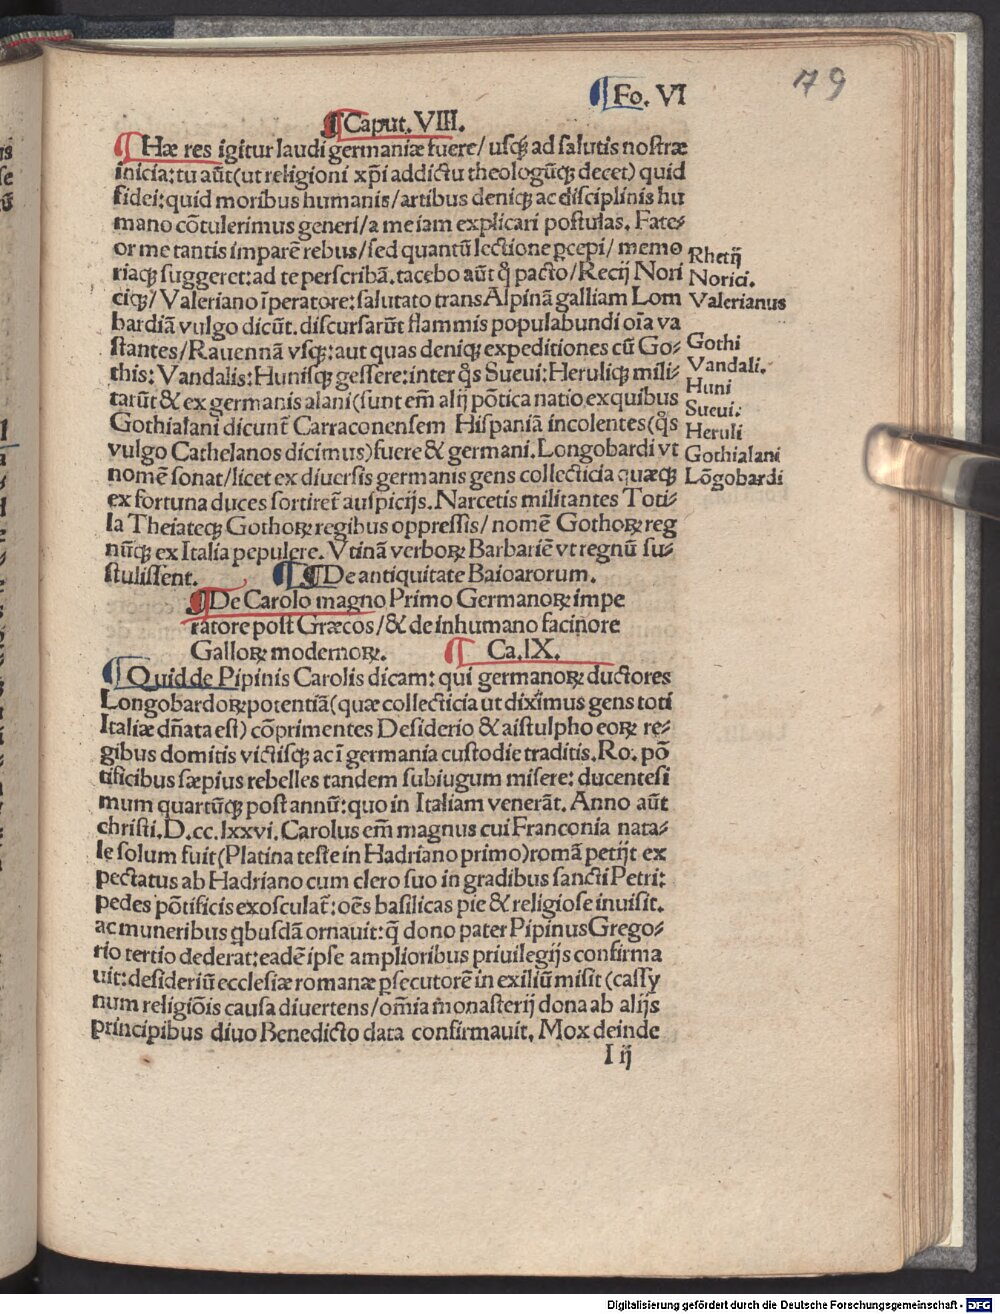 ¶Fo. VI
79
¶Caput. VIII.
¶Hæ res igitur laudi germaniæ fuere/ uſq; ad ſalutis noſtræ
inicia: tu aūt(ut religioni xp̄i addictu theologūq; decet) quid
fidei: quid moribus humanis/artibus deniq; ac diſciplinis hu
mano cōtulerimus generi/a me iam explicari poſtulas. Fate⸗
or me tantis imparē rebus/ſed quantū lectione ꝑcepi/ memo
riaq; ſuggeret: ad te perſcribā. tacebo aūt q̊ pacto/Recij Nori
ciq;/ Valeriano īperatore: ſalutato trans Alpinā galliam Lom
bardiā vulgo dicūt. diſcurſarūt flammis populabundi oīa va
ſtantes/Rauennā vſq;: aut quas deniq; expeditiones cū Go⸗
this: Vandalis: Huniſq; geſſere: inter q̊s Sueui: Heruliq; mili⸗
tarūt & ex germanis alani(ſunt em̄ alij pōtica natio exquibus
Gothialani dicunt̄ Carraconenſem Hiſpaniā incolentes(q̊s
vulgo Cathelanos dicimus)fuere & germani. Longobardi vt
nomē ſonat/licet ex diuerſis germanis gens collecticia quæq;
ex fortuna duces ſortiret̄ auſpicijs. Narcetis militantes Toti⸗
la Theiateq; Gothoꝝ regibus oppreſſis/ nomē Gothoꝝ reg
nūq; ex Italia pepulere. Vtinā verboꝝ Barbariē vt regnū ſu⸗
ſtuliſſent. ¶De antiquitate Baioarorum.
¶De Carolo magno Primo Germanoꝝ impe
ratore poſt Græcos/& de inhumano facinore
Galloꝝ modernoꝝ. ¶ Ca. IX.
¶Quid de Pipinis Carolis dicam: qui germanoꝝ ductores
Longobardoꝝ potentiā(quæ collecticia ut diximus gens toti
Italiæ dn̄ata eſt) cōprimentes Deſiderio & aiſtulpho eoꝝ re⸗
gibus domitis victiſq; ac ī germania cuſtodie traditis. Ro. pō
tificibus ſæpius rebelles tandem ſubiugum miſere: ducenteſi
mum quartūq; poſt annū: quo in Italiam venerāt. Anno aūt
chriſti. D.cc.lxxvi. Carolus em̄ magnus cui Franconia nata⸗
le ſolum fuit(Platina teſte in Hadriano primo)romā petijt ex
pectatus ab Hadriano cum clero ſuo in gradibus ſancti Petri:
pedes pōtificis exoſculat̄: oēs baſilicas pie & religioſe inuiſit.
ac muneribus qbuſdā ornauit: q̄ dono pater Pipinus Grego⸗
rio tertio dederat: eadē ipſe amplioribus priuilegijs confirma
uit: deſideriū eccleſiæ romanæ ꝑſecutorē in exiliū miſit (caſſy
num religiōis cauſa diuertens/omīa monaſterij dona ab alijs
principibus diuo Benedicto data confirmauit. Mox deinde
I ij
Rhetij
Norici.
Valerianus
Gothi
Vandali.
Huni
Sueui.
Heruli
Gothialani
Lōgobardi
Digitalisierung gefördert durch die Deutsche Forschungsgemeinschaft - DFG